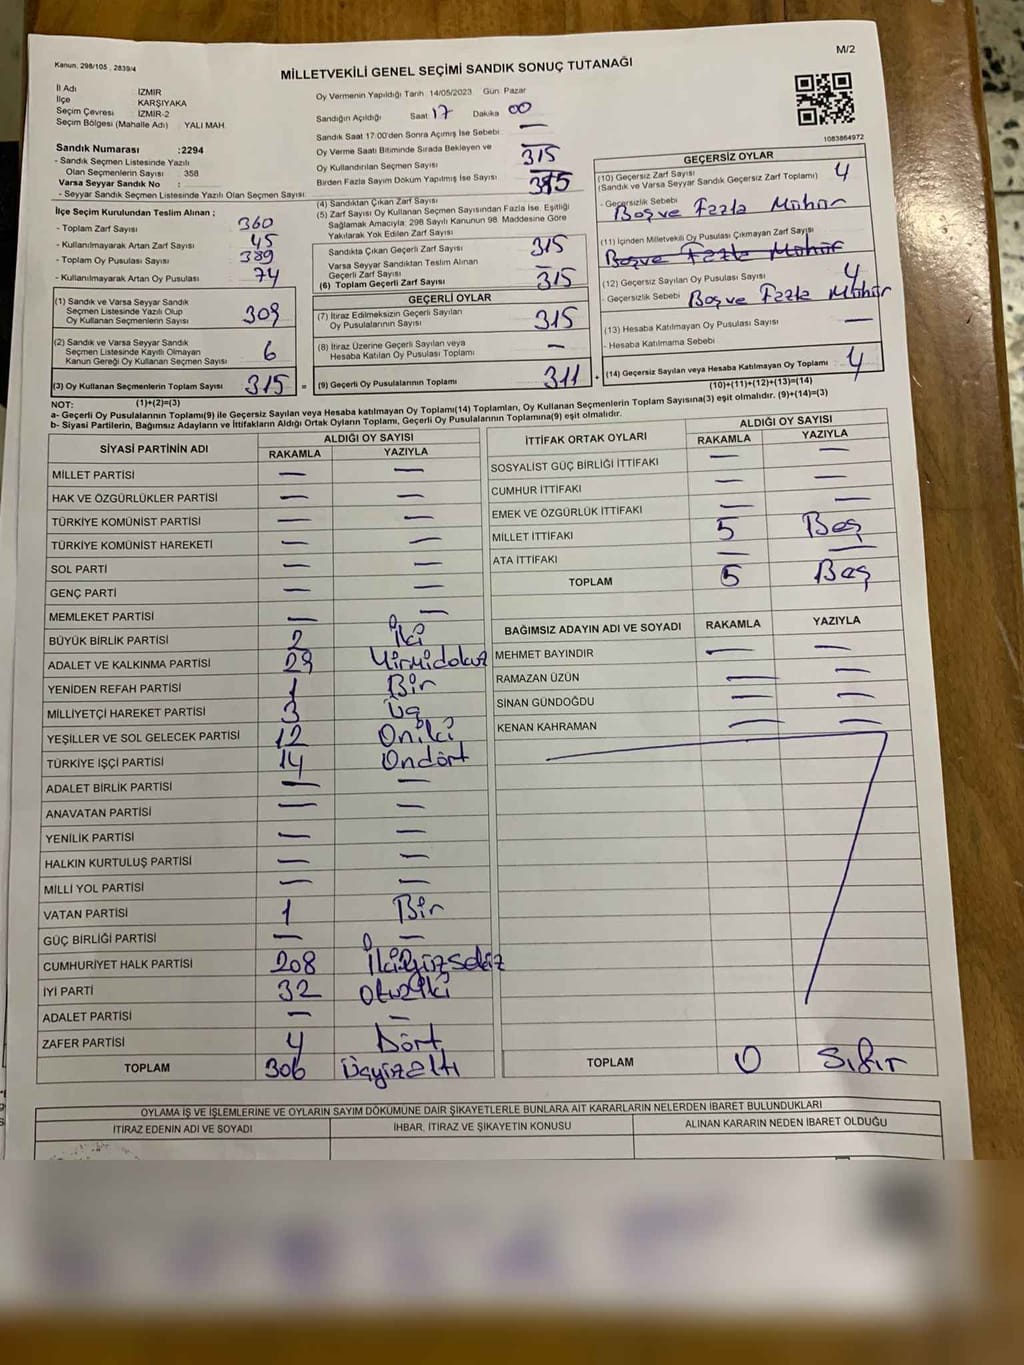 M/2
Kanun, 298/105, 2839/4
MİLLETVEKİLİ GENEL SEÇİMİ SANDIK SONUÇ TUTANAĞI
İl Adı İZMİR
İlçe KARŞIYAKA
Seçim Çevresi İZMİR-2
Seçim Bölgesi (Mahalle Adı) YALI MAH.
Sandık Numarası :2294
- Sandık Seçmen Listesinde Yazılı
Olan Seçmenlerin Sayısı : 358
Varsa Seyyar Sandık No :
- Seyyar Sandık Seçmen Listesinde Yazılı Olan Seçmen Sayısı:
İlçe Seçim Kurulundan Teslim Alınan ;
- Toplam Zarf Sayısı : 360
- Kullanılmayarak Artan Zarf Sayısı : 45
- Toplam Oy Pusulası Sayısı : 389
- Kullanılmayarak Artan Oy Pusulası : 74
(1) Sandık ve Varsa Seyyar Sandık
Seçmen Listesinde Yazılı Olup
Oy Kullanan Seçmenlerin Sayısı 309
(2) Sandık ve Varsa Seyyar Sandık
Seçmen Listesinde Kayıtlı Olmayan
Kanun Gereği Oy Kullanan Seçmen Sayısı 6
(3) Oy Kullanan Seçmenlerin Toplam Sayısı 315 =
Oy Vermenin Yapıldığı Tarih :14/05/2023 Gün: Pazar
Sandığın Açıldığı Saat: 17 Dakika: 00
Sandık Saat 17:00'den Sonra Açılmış İse Sebebi : —
Oy Verme Saati Bitiminde Sırada Bekleyen ve
Oy Kullandırılan Seçmen Sayısı : —
Birden Fazla Sayım Döküm Yapılmış İse Sayısı : —
(4) Sandıktan Çıkan Zarf Sayısı
(5) Zarf Sayısı Oy Kullanan Seçmen Sayısından Fazla İse, Eşitliği
Sağlamak Amacıyla; 298 Sayılı Kanunun 98. Maddesine Göre
Yakılarak Yok Edilen Zarf Sayısı
Sandıkta Çıkan Geçerli Zarf Sayısı 315
Varsa Seyyar Sandıktan Teslim Alınan
Geçerli Zarf Sayısı —
(6) Toplam Geçerli Zarf Sayısı 315
GEÇERLİ OYLAR
(7) İtiraz Edilmeksizin Geçerli Sayılan
Oy Pusulalarının Sayısı 315
(8) İtiraz Üzerine Geçerli Sayılan veya
Hesaba Katılan Oy Pusulası Toplamı —
(9) Geçerli Oy Pusulalarının Toplamı 311 +
1083864972
GEÇERSİZ OYLAR
(10) Geçersiz Zarf Sayısı 4
(Sandık ve Varsa Seyyar Sandık Geçersiz Zarf Toplamı)
- Geçersizlik Sebebi Boş ve Fazla Mühür
(11) İçinden Milletvekili Oy Pusulası Çıkmayan Zarf Sayısı
Boş ve Fazla Mühür
(12) Geçersiz Sayılan Oy Pusulası Sayısı 4
- Geçersizlik Sebebi Boş ve Fazla Mühür
(13) Hesaba Katılmayan Oy Pusulası Sayısı —
- Hesaba Katılmama Sebebi
(14) Geçersiz Sayılan veya Hesaba Katılmayan Oy Toplamı 4
(10)+(11)+(12)+(13)=(14)
NOT: (1)+(2)=(3)
a- Geçerli Oy Pusulalarının Toplamı(9) ile Geçersiz Sayılan veya Hesaba katılmayan Oy Toplamı(14) Toplamları, Oy Kullanan Seçmenlerin Toplam Sayısına(3) eşit olmalıdır. (9)+(14)=(3)
b- Siyasi Partilerin, Bağımsız Adayların ve İttifakların Aldığı Ortak Oyların Toplamı, Geçerli Oy Pusulalarının Toplamına(9) eşit olmalıdır.
SİYASİ PARTİNİN ADI ALDIĞI OY SAYISI
RAKAMLA YAZIYLA
MİLLET PARTİSİ — —
HAK VE ÖZGÜRLÜKLER PARTİSİ — —
TÜRKİYE KOMÜNİST PARTİSİ — —
TÜRKİYE KOMÜNİST HAREKETİ — —
SOL PARTİ — —
GENÇ PARTİ — —
MEMLEKET PARTİSİ — —
BÜYÜK BİRLİK PARTİSİ 2 İki
ADALET VE KALKINMA PARTİSİ 29 Yirmidokuz
YENİDEN REFAH PARTİSİ 1 Bir
MİLLİYETÇİ HAREKET PARTİSİ 3 Üç
YEŞİLLER VE SOL GELECEK PARTİSİ 12 Oniki
TÜRKİYE İŞÇİ PARTİSİ 14 Ondört
ADALET BİRLİK PARTİSİ — —
ANAVATAN PARTİSİ — —
YENİLİK PARTİSİ — —
HALKIN KURTULUŞ PARTİSİ — —
MİLLİ YOL PARTİSİ — —
VATAN PARTİSİ 1 Bir
GÜÇ BİRLİĞİ PARTİSİ — —
CUMHURİYET HALK PARTİSİ 208 İkiyüzsekiz
İYİ PARTİ 32 Otuziki
ADALET PARTİSİ — —
ZAFER PARTİSİ 4 Dört
TOPLAM 306 Üçyüzaltı
İTTİFAK ORTAK OYLARI ALDIĞI OY SAYISI
RAKAMLA YAZIYLA
SOSYALİST GÜÇ BİRLİĞİ İTTİFAKI — —
CUMHUR İTTİFAKI — —
EMEK VE ÖZGÜRLÜK İTTİFAKI — —
MİLLET İTTİFAKI 5 Beş
ATA İTTİFAKI — —
TOPLAM 5 Beş
BAĞIMSIZ ADAYIN ADI VE SOYADI RAKAMLA YAZIYLA
MEHMET BAYINDIR — —
RAMAZAN ÜZÜN — —
SİNAN GÜNDOĞDU — —
KENAN KAHRAMAN — —
TOPLAM 0 Sıfır
OYLAMA İŞ VE İŞLEMLERİNE VE OYLARIN SAYIM DÖKÜMÜNE DAİR ŞİKAYETLERLE BUNLARA AİT KARARLARIN NELERDEN İBARET BULUNDUKLARI
İTİRAZ EDENİN ADI VE SOYADI İHBAR, İTİRAZ VE ŞİKAYETİN KONUSU ALINAN KARARIN NEDEN İBARET OLDUĞU